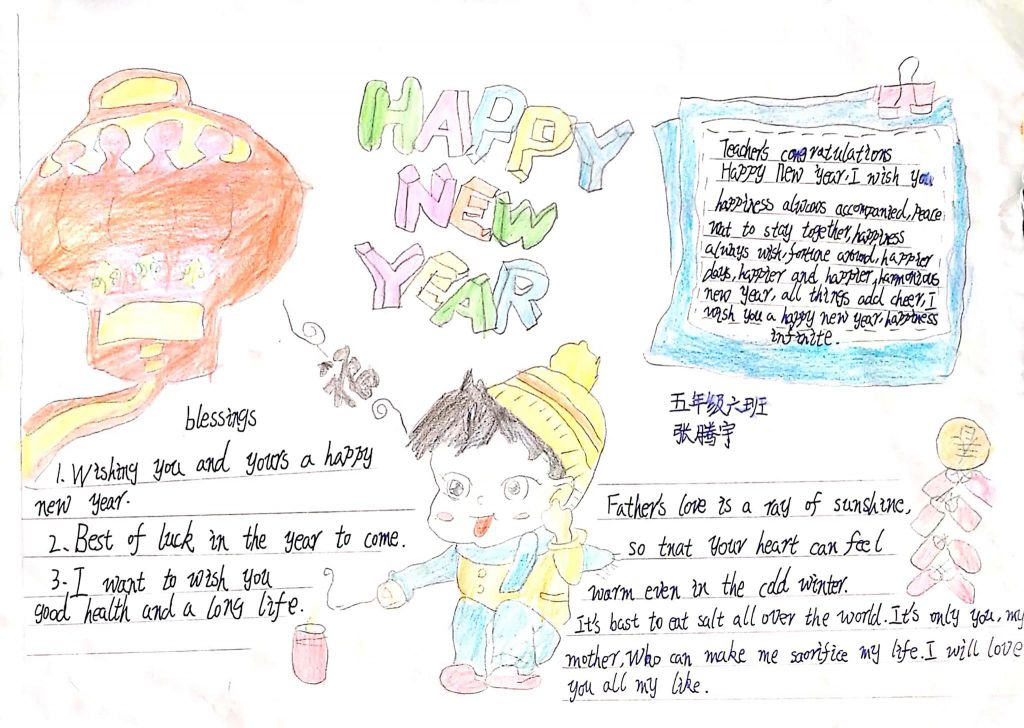 HAPPY
NEW
YEAR
Teacher's congratulations
Happy New Year, I wish you
happiness always accompanied, Peace
not to stay together, happiness
always wish, fortune around, happier
days, happier and happier, harmonious
new year, all things add cheer, I
wish you a happy new year, happiness
infinite.
五年级六班
张腾宇
福
blessings
1. Wishing you and yours a happy
new year.
2. Best of luck in the year to come.
3. I want to wish you
good health and a long life.
Father's love is a ray of sunshine,
so tnat your heart can feel
warm even in the cdd winter.
It's bast to eat salt all over the world. It's only you, my
mother, Who can make me sacrifice my life. I will love
you all my like.